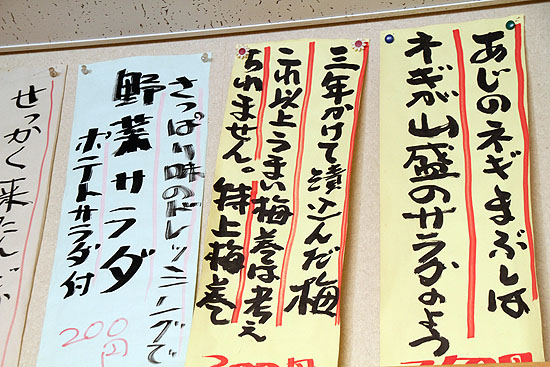 あじのネギまぶしは
ネギが山盛のサラダのよう
三年かけて漬込んだ梅
これ以上うまい梅巻は考え
られません。特上梅巻
さっぱり味のドレッシーングで
野菜サラダ
ポテトサラダ付
200円
せっかく来たんだか